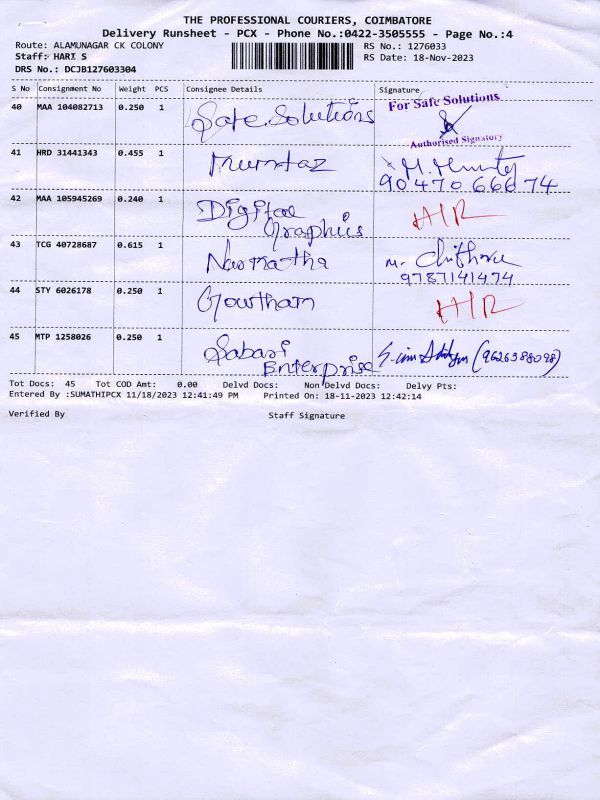 THE PROFESSIONAL COURIERS, COIMBATORE
Delivery Runsheet - PCX - Phone No.:0422-3505555 - Page No.:4
Route: ALAMUNAGAR CK COLONY RS No.: 1276033
Staff: HARI S RS Date: 18-Nov-2023
DRS No.: DCJB127603304
S No Consignment No Weight PCS Consignee Details Signature
40 MAA 104082713 0.250 1 Safe Solutions For Safe Solutions
Authorised Signatory
41 HRD 31441343 0.455 1 Mumtaz
9047066674
42 MAA 105945269 0.240 1 Digital
Graphics
43 TCG 40728687 0.615 1 Narmatha
9787141474
44 STY 6026178 0.250 1 Gowtham
45 MTP 1258026 0.250 1 Sabari
Enterprise (9626388098)
Tot Docs: 45 Tot COD Amt: 0.00 Delvd Docs: Non Delvd Docs: Delvy Pts:
Entered By :SUMATHIPCX 11/18/2023 12:41:49 PM Printed On: 18-11-2023 12:42:14
Verified By Staff Signature